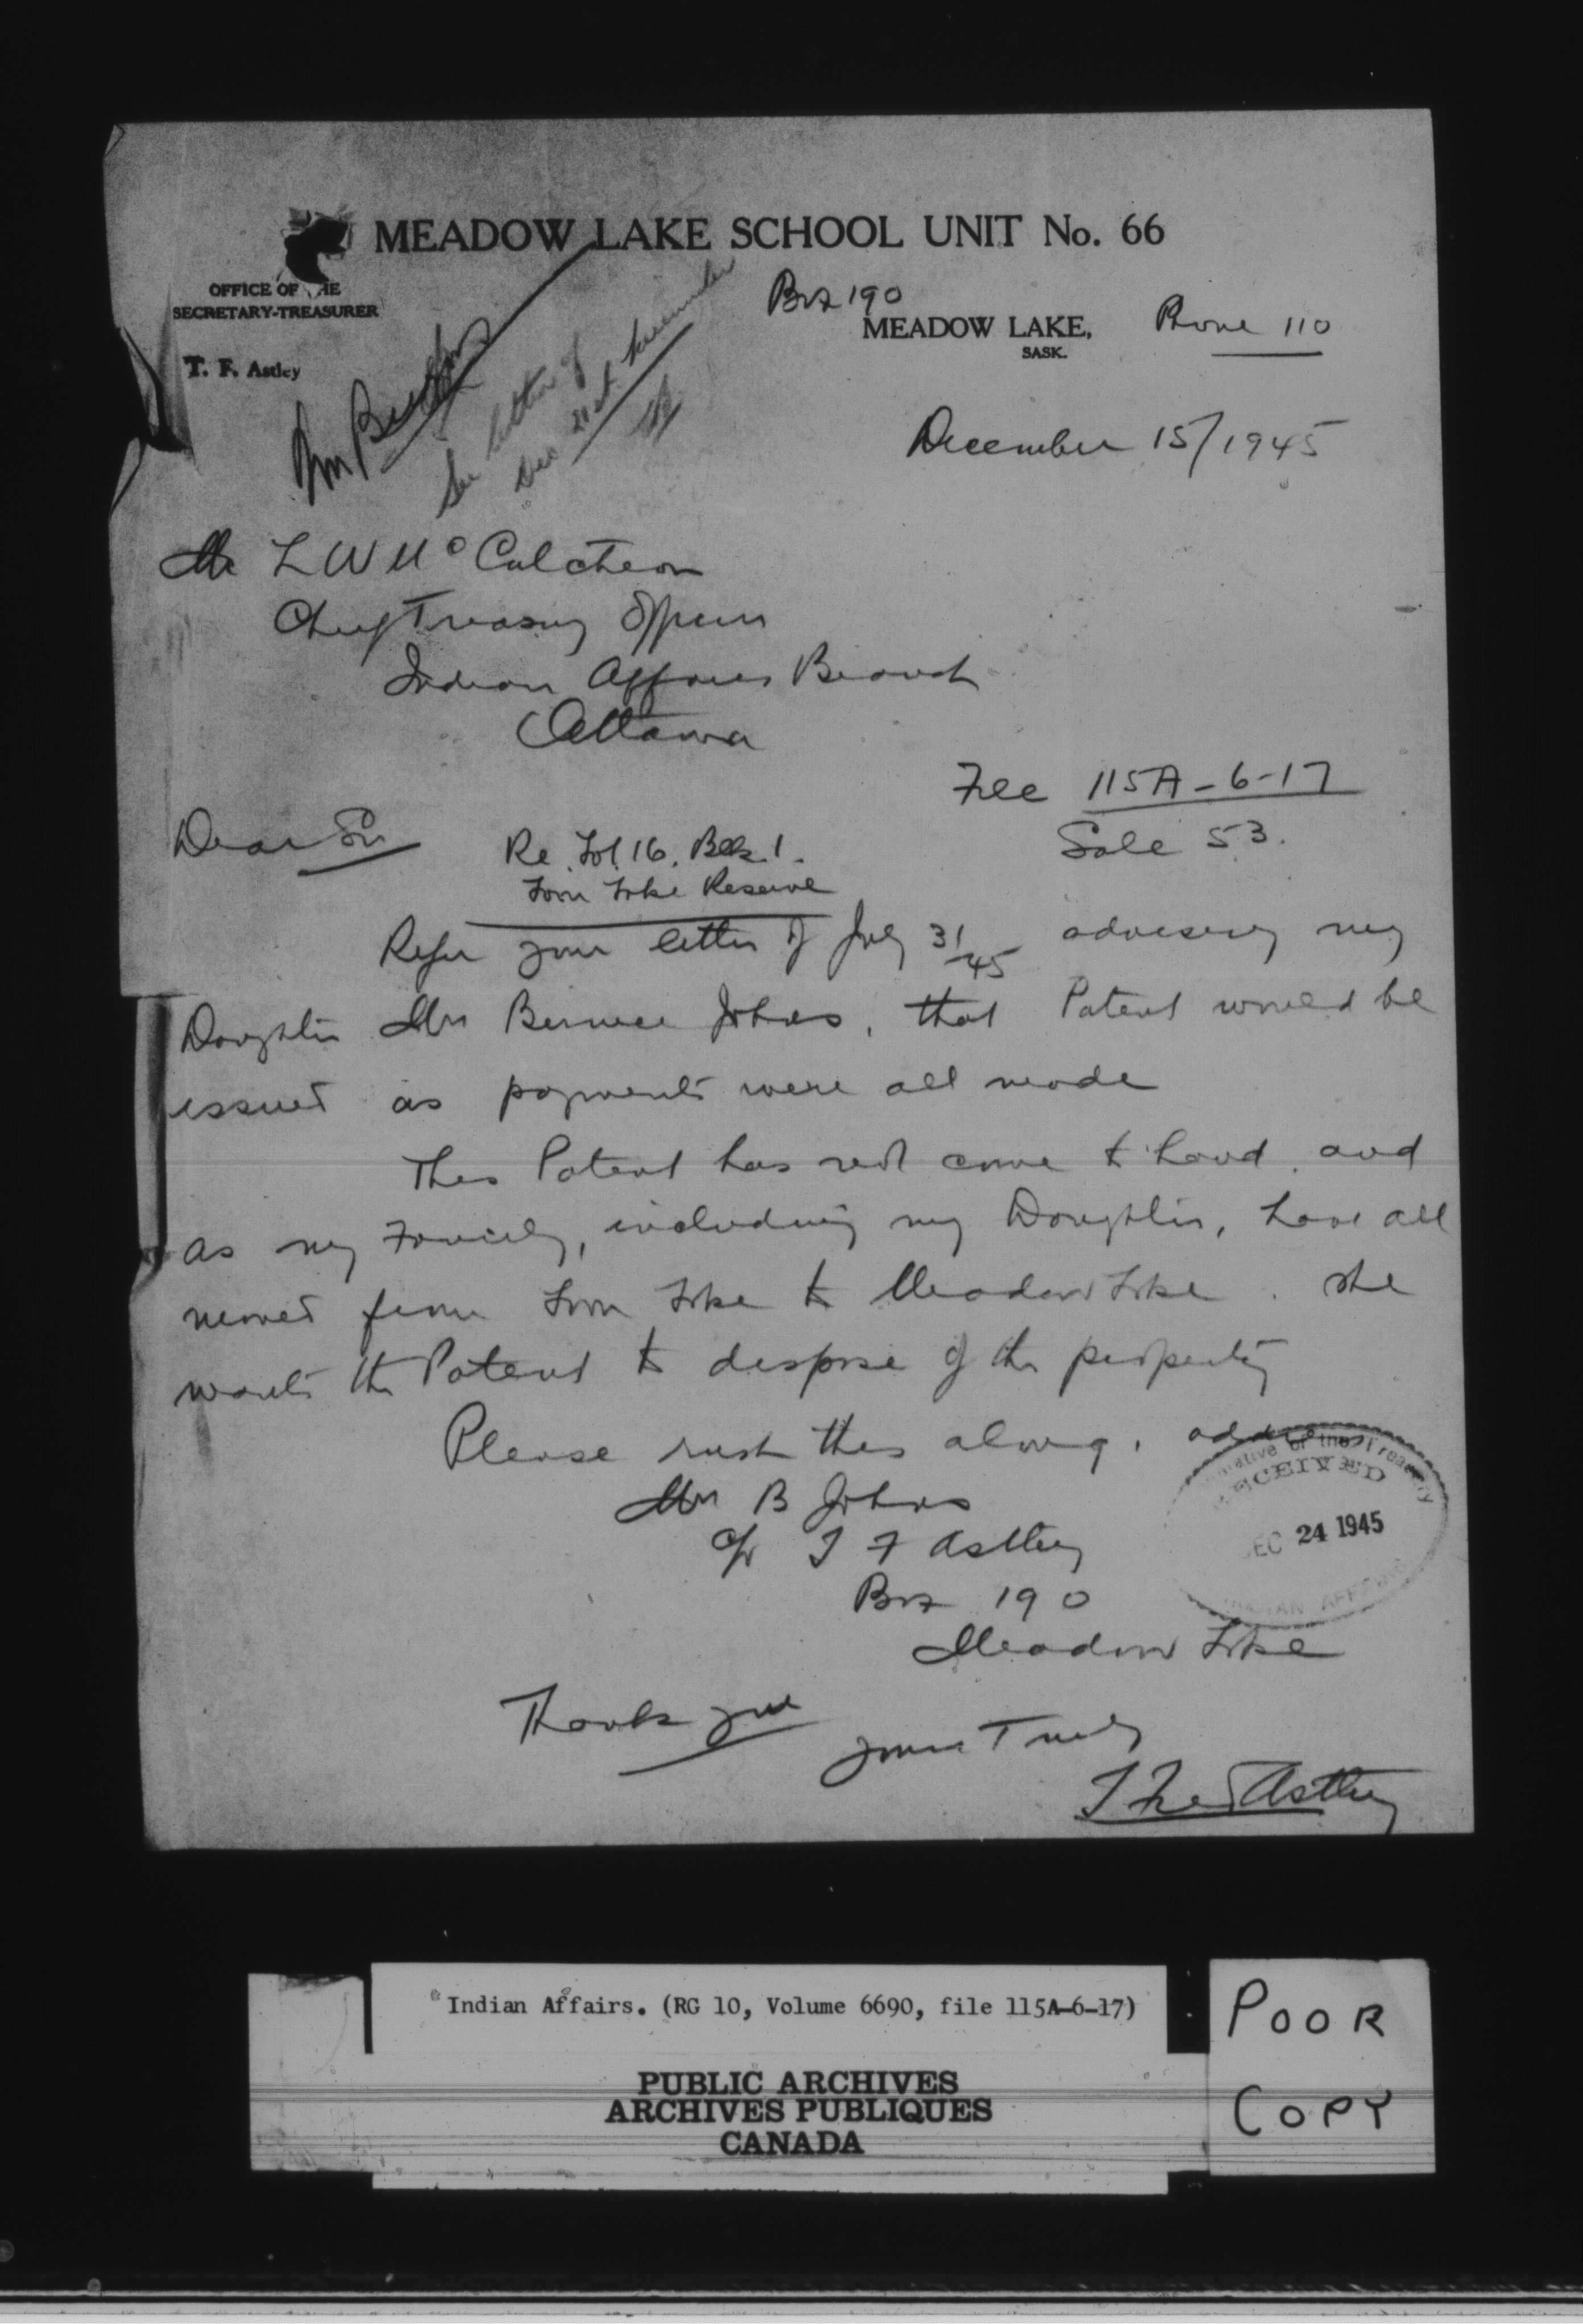 MEADOW LAKE SCHOOL UNIT No. 66
OFFICE OF THE
SECRETARY-TREASURER
T. F. Astley
Box 190
MEADOW LAKE,
SASK.
Phone 110
See letter of
Dec 21st
December 15/1945
Mr L W McCutcheon
Chief Treasury Officer
Indian Affairs Branch
Ottawa
File 115A-6-17
Sale 53.
Dear Sir
Re Lot 16. Blk. 1.
Loon Lake Reserve
Refer your letter of July 31/45 advising my
Daughter Mrs Bernice Johns, that Patent would be
issued as payments were all made
This Patent has not come to hand. and
as my Family, including my Daughter, have all
moved from Loon Lake to Meadow Lake. she
wants the Patent to dispose of the property
Please rush this along, address
Mrs B Johns
c/o T F Astley
Box 190
Meadow Lake
of the Treasury
RECEIVED
DEC 24 1945
INDIAN AFFAIRS
Thank you
yours Truly
T Fred Astley
Indian Affairs. (RG 10, Volume 6690, file 115A-6-17)
PUBLIC ARCHIVES
ARCHIVES PUBLIQUES
CANADA
POOR
COPY